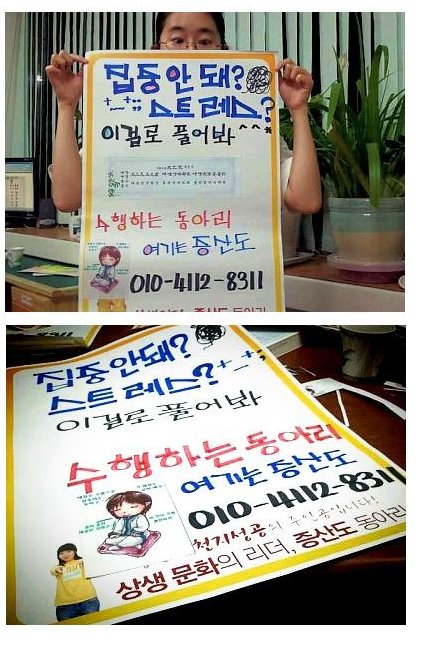 집중안돼?
스트레스?
이걸로 풀어봐^^*
수행하는 동아리
여기는 증산도
010-4112-8311
상생문화의 리더, 증산도 동아리
집중안돼?
스트레스?
이걸로 풀어봐
수행하는 동아리
여기는 증산도
010-4112-8311
천기성공의 주인공입니다!
상생 문화의 리더, 증산도 동아리